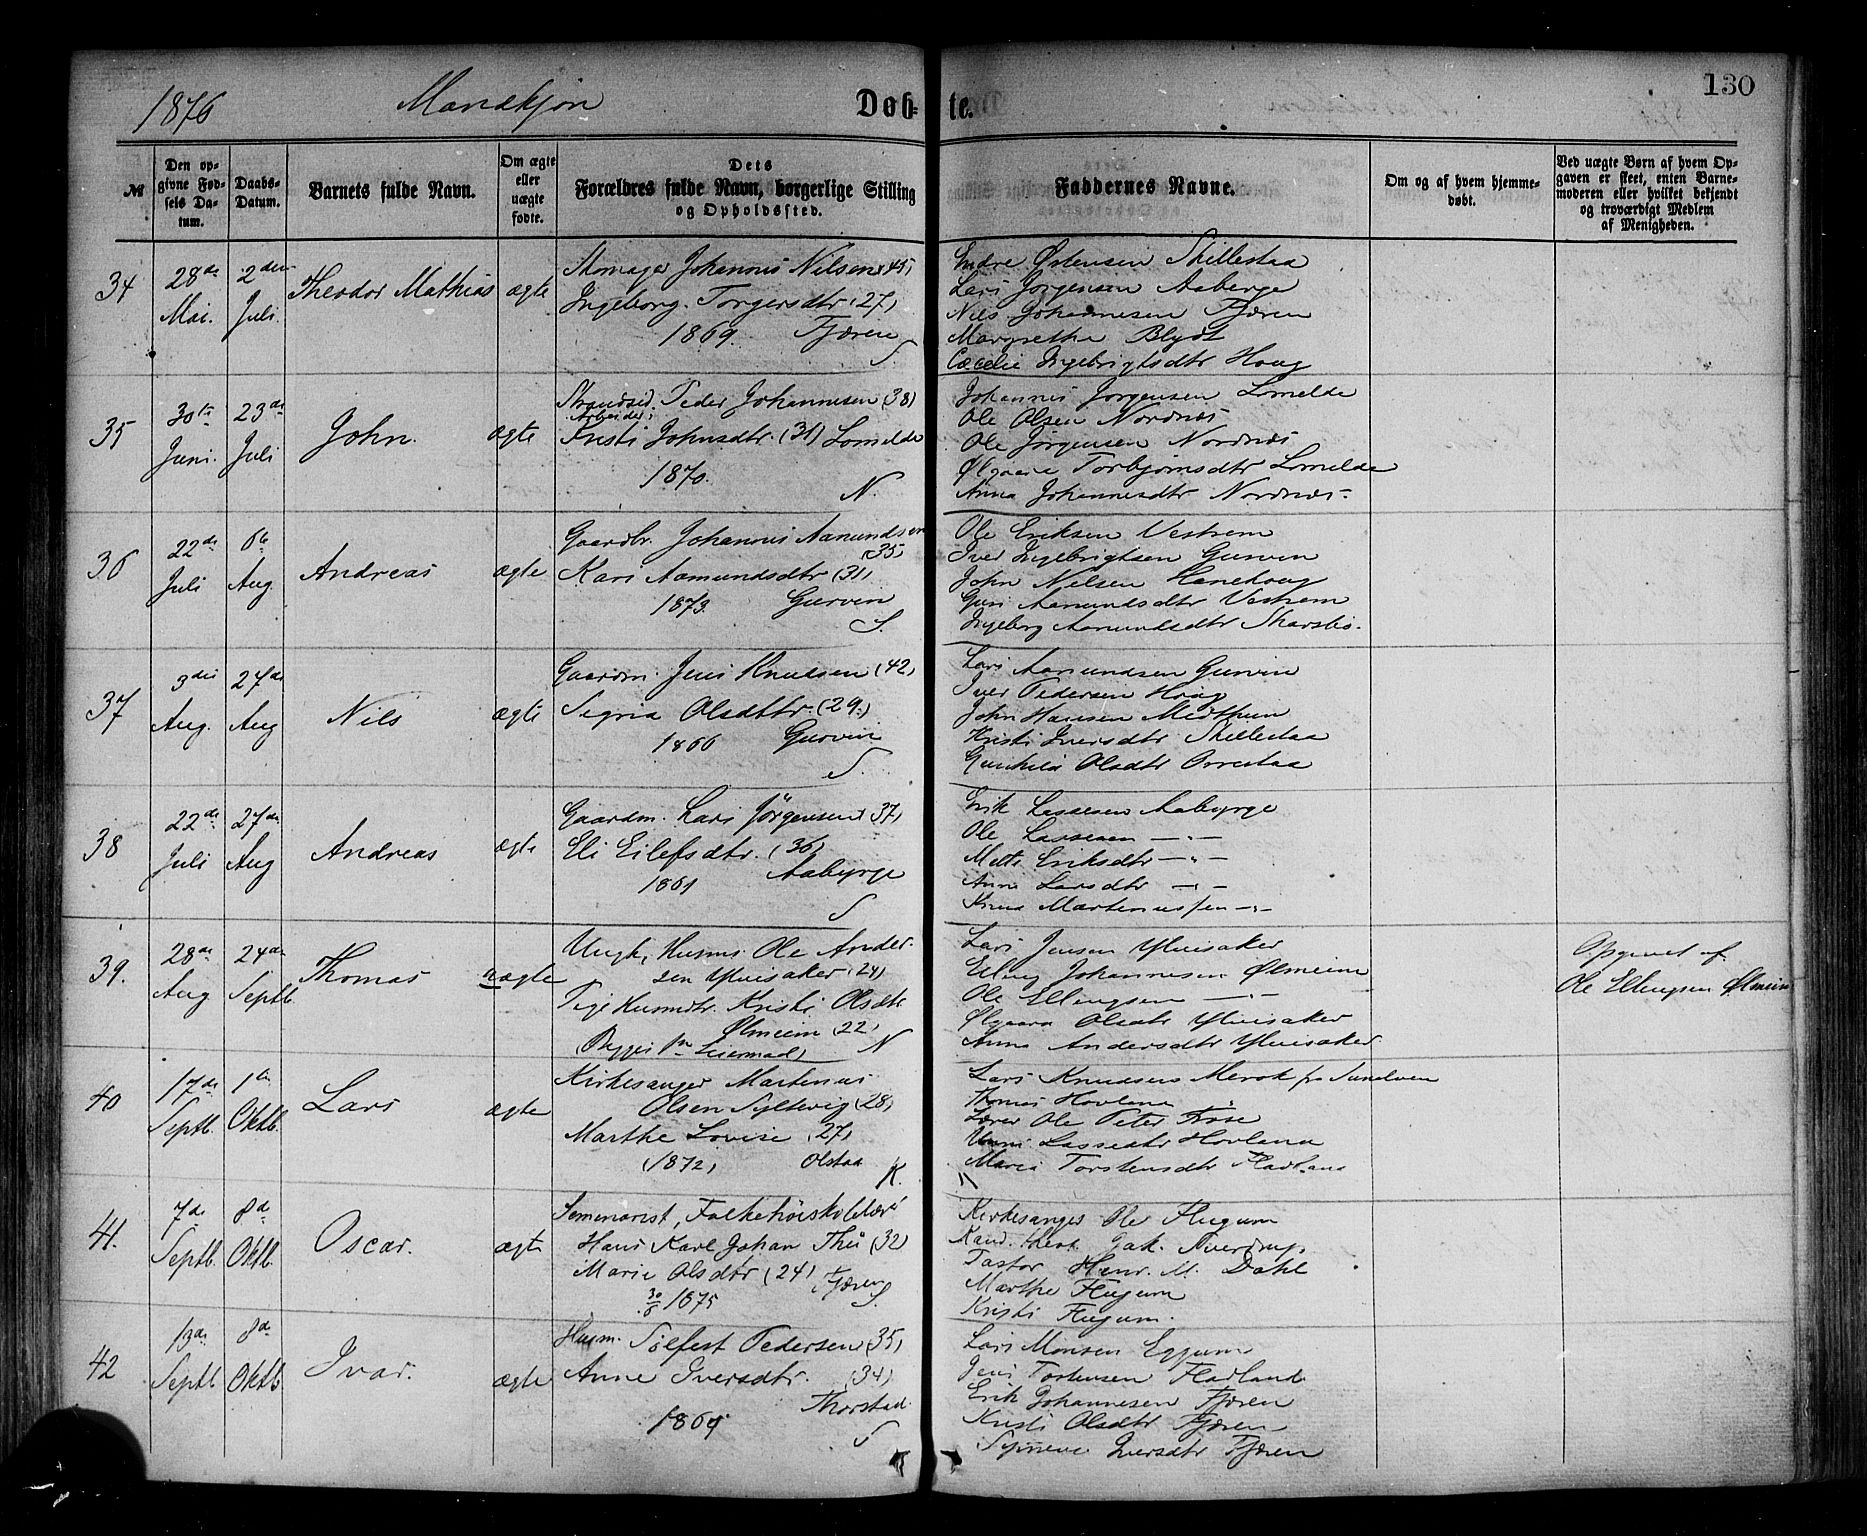 1876 Mandkjøn Døbte. 130
№
Den opgivne Fødsels Datum.
Daabs-Datum.
Barnets fulde Navn.
Om ægte eller uægte fødte.
Dets Forældres fulde Navn, borgerlige Stilling og Opholdssted.
Faddernes Navne.
Om og af hvem hjemmedøbt.
Ved uægte Børn af hvem Opgaven er skeet, enten Barnemoderen eller hvilket bekjendt og troværdigt Medlem af Menigheden.
34 28de Mai. 2den Juli. Theodor Mathias ægte
Skomager Johannes Nilsen (45)
Ingeborg Torgersdtr (27)
1869. Fjæren
S
Endre Østensen Skillestaa
Lars Jørgensen Aaberge
Nils Johannesen Fjæren
Margrethe Blydt
Cæcelie Ingebrigtsdtr Haug
35 30te Juni. 23de Juli John. ægte
Strandsid. Peder Johannesen (38)
Arbeider,
Kristi Johnsdtr. (31) Lomelde
1870.
N.
Johannes Jørgensen Lomelde
Ole Olsen Nordnæs
Ole Jørgensen Nordnæs
Ølgaare Torbjørnsdtr Lomelde
Anna Johannesdtr Nordnæs.
36 22de Juli 6te Aug. Andreas ægte
Gaardbr. Johannes Aamundsen (35)
Kari Aamundsdtr (31)
1873. Gurvin
S.
Ole Eriksen Vestrem
Iver Ingebrigtsen Gurvin
John Nilsen Hanehaug
Guri Aamundsdtr Vestrem
Ingeborg Aamundsdtr Skarsbø.
37 3die Aug. 27de Aug Nils ægte
Gaardm. Jens Knudsen (42)
Sigrid Olsdtr. (29.)
1866 Gurvin
S.
Lars Aamundsen Gurvin
Iver Pedersen Haug
John Hansen Midthun
Kristi Iversdtr Skillestaa
Gunhild Olsdtr Orrestaa
38 22de Juli 27de Aug Andreas ægte
Gaardm. Lars Jørgensen (37)
Eli Eilefsdtr. (36)
1861 Aabyrge
S
Erik Lassesen Aabyrge
Ole Lassesen —"—
Mette Eriksdtr —"—
Anna Larsdtr —"—
Knud Martinussen —"—
39. 28de Aug 24de Septb. Thomas uægte
Ungk, Husms. Ole Andersen Ylvisaker (24)
Pige Husmdtr. Kristi Olsdtr
Ølmeim (22)
(Begges 1ste Leiermaal) N
Lars Jensen Ylvisaker
Elling Johannesen Ølmeim
Ole Ellingsen —"—
Ølgaara Olsdtr Ylvisaker
Anna Andersdtr Ylvisaker
Opgivet af
Ole Ellingsen Ølmeim
40 17de Septb. 1ste Oktb. Lars ægte
Kirkesanger Martinus
Olsen Syltevig (28)
Marthe Lovise (27)
(1872) Olstaa
K.
Lars Knudsen Merok fra Sunelven
Thomas Hovland
Lærer Ole Peter Fosse
Unni Lassedtr Hovland
Maria Torstensdtr Fladland
41. 7de Septb. 8de Oktb. Oscar. ægte
Seminarist, Folkehøiskolelærer
Hans Karl Johan Thii (32)
Marie Olsdtr (24) Fjæren
30/6 1875 S.
Kirkesanger Ole Flugum
Kand. theol. Jak. Sverdrup
Pastor Henr. M. Dahl
Marthe Flugum
Kristi Flugum.
42 13de Septb. 8de Oktb Ivar. ægte
Husm. Sølfest Pedersen (35)
Anne Iversdtr. (34)
Thorstad.
1869
S
Lars Monsen Eggum
Jens Torstensen Fladland
Erik Johannesen Fjæren
Kristi Olsdtr Fjæren
Synneve Iversdtr Fjæren